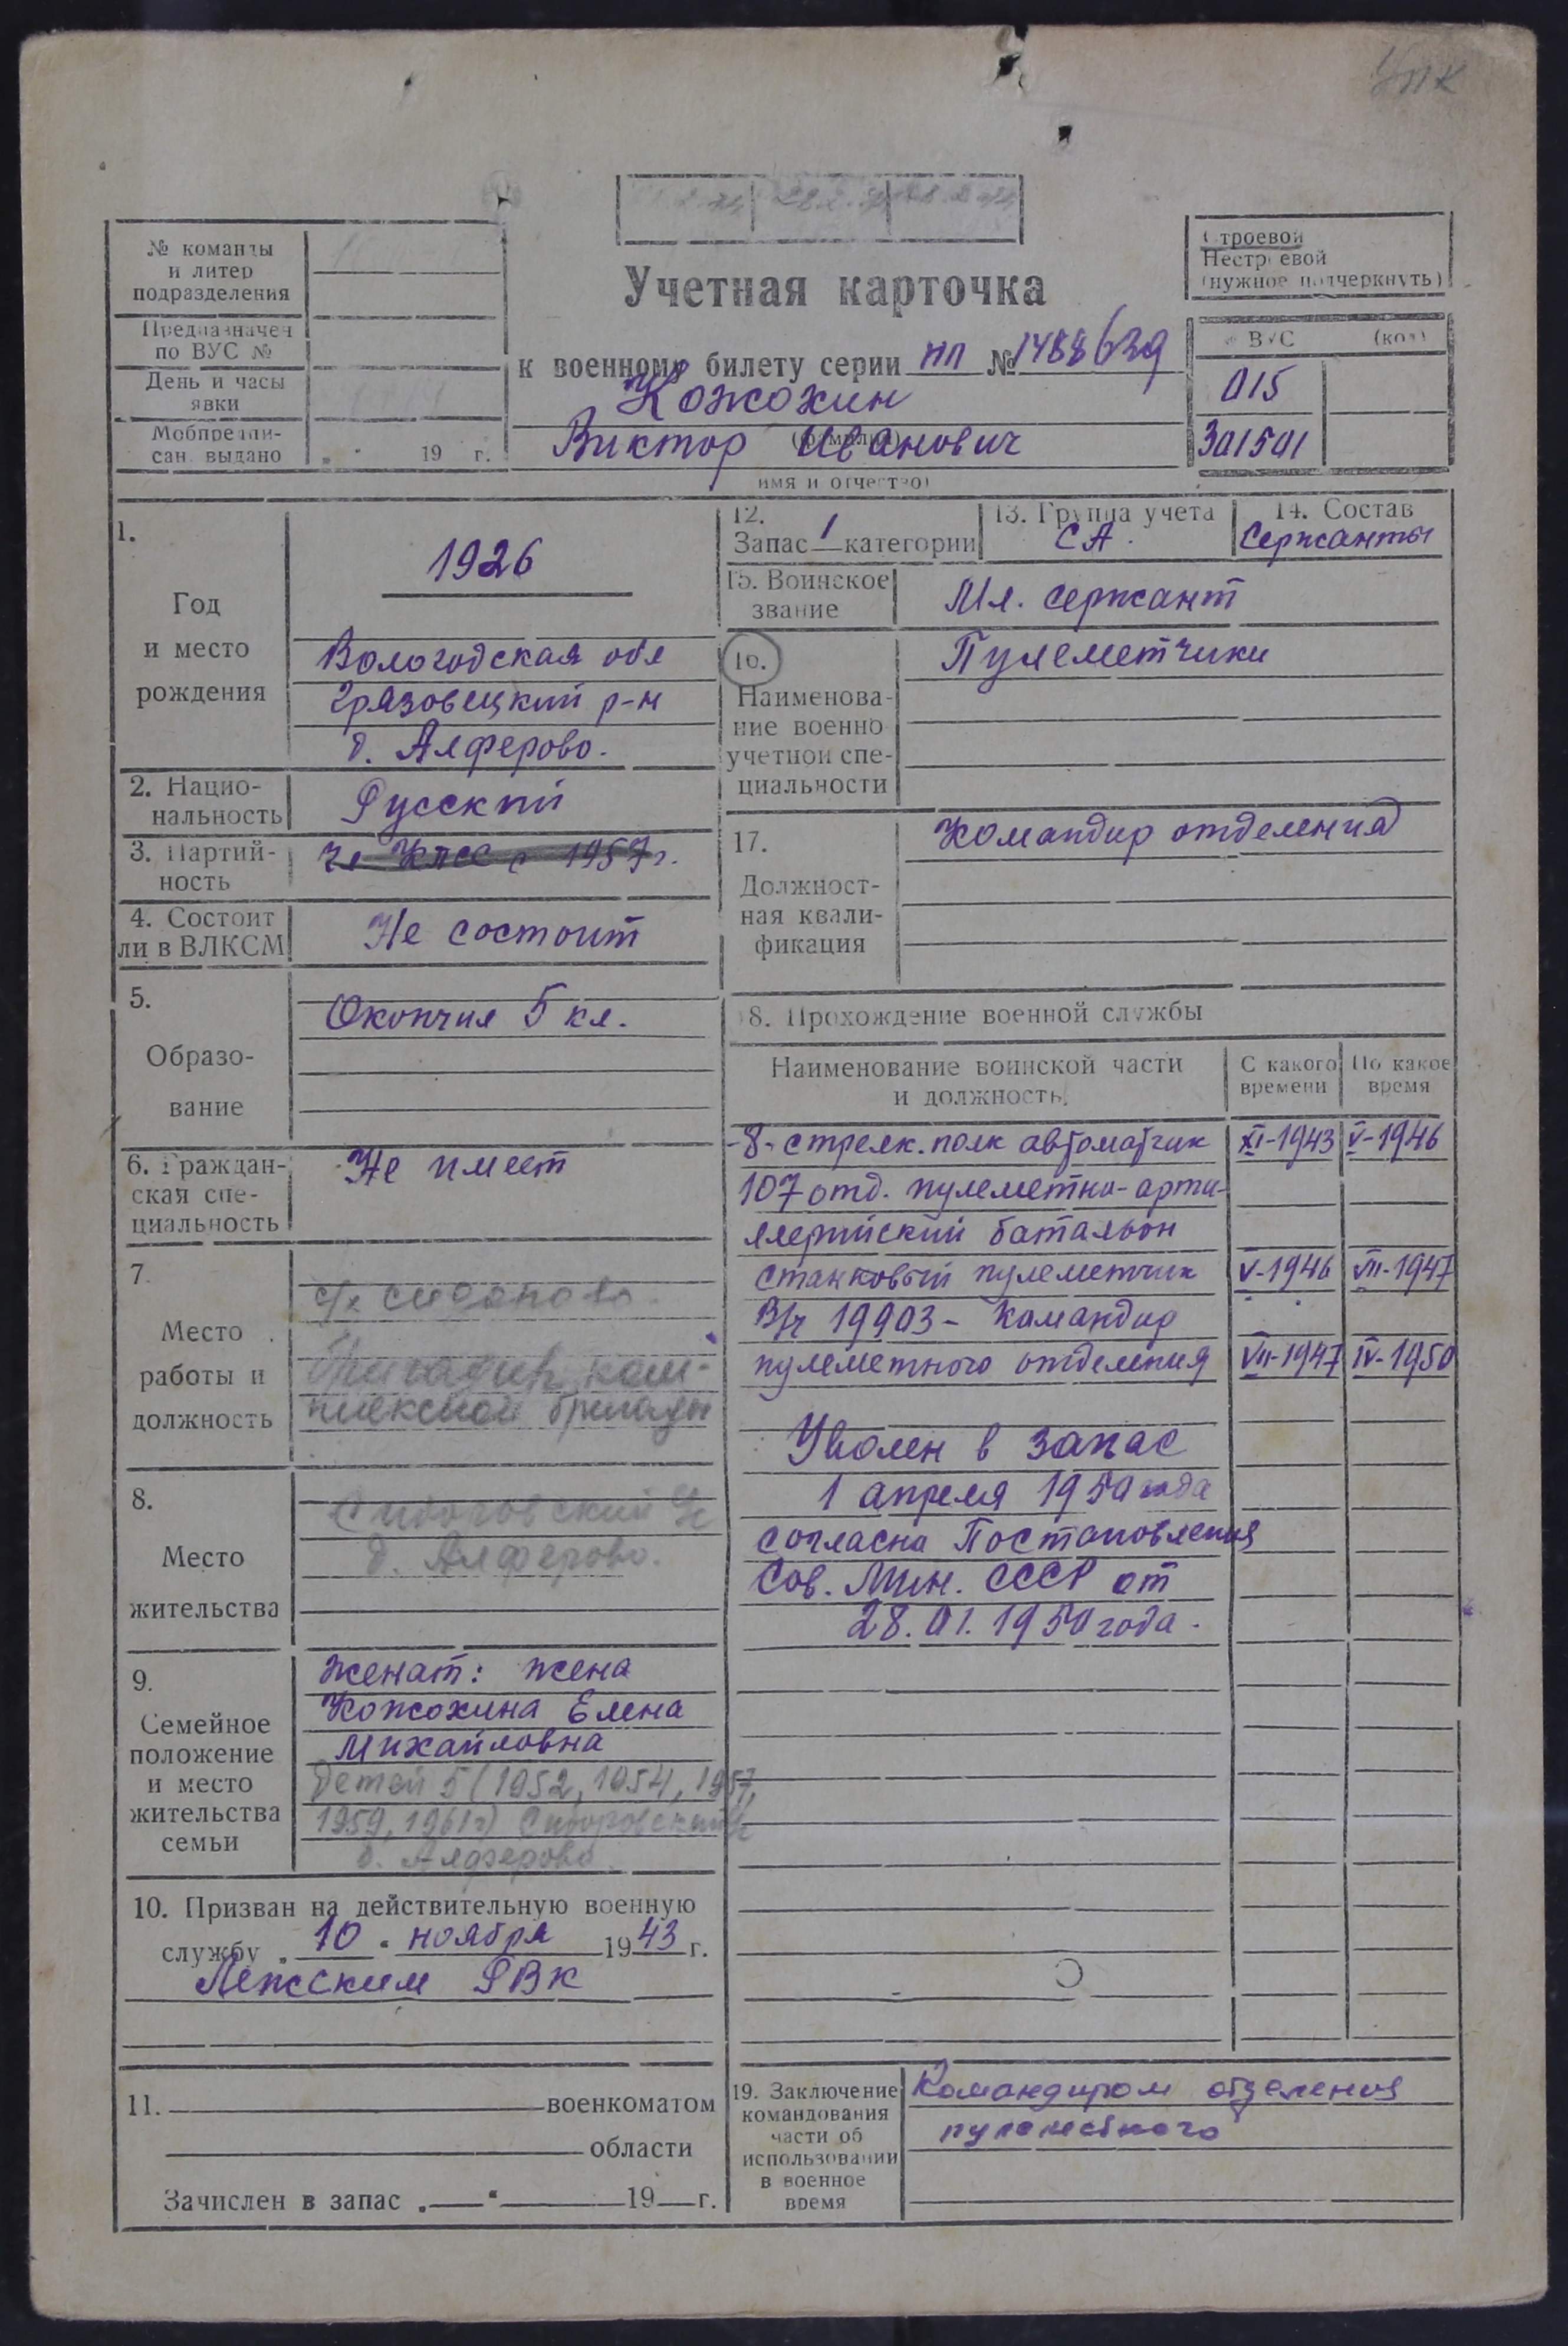 УПК
№ команды
и литер
подразделения
Предназначен
по ВУС №
День и часы
явки
Мобпредпи-
сан. выдано „ “ 19 г.
Учетная карточка
к военному билету серии НП № 1488639
Кожохин
(фамилия)
Виктор Иванович
имя и отчество)
Строевой
Нестроевой
(нужное подчеркнуть)
№ ВУС (код)
015
301501
1.
Год
и место
рождения
1926
Вологодская обл
Грязовецкий р-н
д. Алферово.
2. Нацио-
нальность
Русский
3. Партий-
ность
чл КПСС с 1957 г.
4. Состоит
ли в ВЛКСМ
Не состоит
5.
Образо-
вание
Окончил 5 кл.
6. Граждан-
ская спе-
циальность
Не имеет
7.
Место
работы и
должность
Бригадир ком-
плексной бригады
8.
Место
жительства
Сидоровский с/с
д. Алферово.
9.
Семейное
положение
и место
жительства
семьи
женат: жена
Кожохина Елена
Михайловна
детей 5 (1952, 1954, 1957,
1959, 1961г) Сидоровский с/с
д. Алферово
10. Призван на действительную военную
службу „10“ ноября 1943 г.
Лежским РВК
11. военкоматом
области
Зачислен в запас „ “ 19 г.
12.
Запас 1 категории
13. Группа учета
СА.
14. Состав
Сержанты
15. Воинское
звание
Мл. сержант
16.
Наименова-
ние военно
учетной спе-
циальности
Пулеметчики
17.
Должност-
ная квали-
фикация
Командир отделения
18. Прохождение военной службы
Наименование воинской части
и должность
С какого
времени
По какое
время
-8- стрелк. полк автоматчик XI-1943 V-1946
107 отд. пулеметно-арти-
ллерийский батальон
станковый пулеметчик V-1946 VII-1947
В/ч 19903 - Командир
пулеметного отделения VII-1947 IV-1950
Уволен в запас
1 апреля 1950 года
согласно Постановления
Сов. Мин. СССР от
28.01.1950 года.
19. Заключение
командования
части об
использовании
в военное
время
Командиром отделения
пулеметного